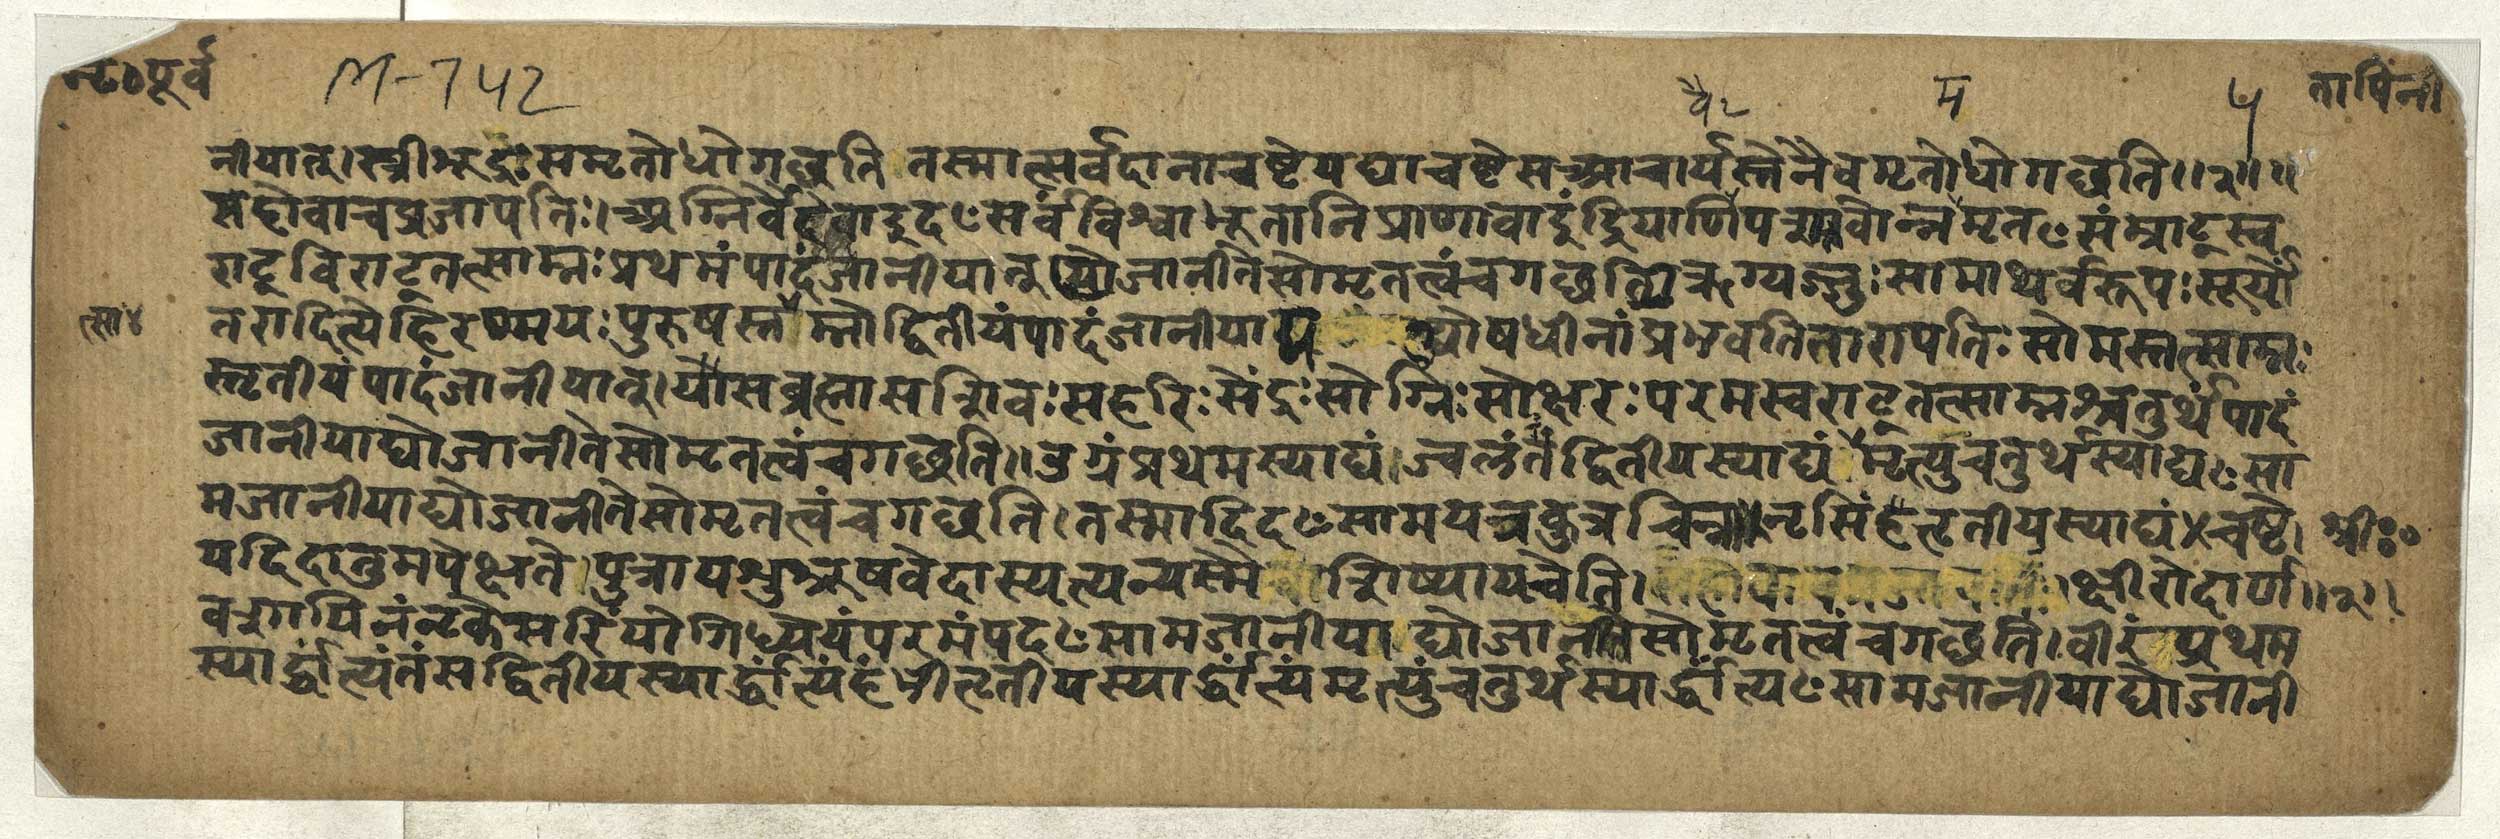 नृ०पूर्व M-742 वै२ म ५ तापिनी
नीयात्।स्त्रीशूद्रः समृतोधोगछति तस्मात्सर्वदानाचष्टेयद्याचष्टेसआचार्यस्तेनैवमृतोधोगछति।।२।।।।
सहोवाचप्रजापतिः।अग्निर्वै वादइदꣳसर्वंविश्वाभूतानिप्राणावाइंद्रियाणिपशवोन्नममृतꣳसंम्राट्स्व
राट्विराट्तत्साम्नःप्रथमंपादंजानीयात् योजानीतेसोमृतत्त्वंचगछति ऋग्यजुःसामाथर्वरूपःसूर्यों
तरादित्येहिरण्मयःपुरुषस्त म्नोद्वितीयंपादंजानीयाद्य ओषधीनांप्रभवतितारापतिःसोमस्तत्साम्नः
त्सा४
स्तृतीयंपादंजानीयात्।योसब्रह्मासशिवःसहरिःसेंद्रःसोग्निःसोक्षरःपरमस्वराट्तत्साम्नश्चतुर्थंपादं
जानीयाद्योजानीतेसोमृतत्त्वंचगछति।।उग्रंप्रथमस्याद्यं।ज्वलंतंद्वितीयस्याद्यं मृत्युचतुर्थस्याद्यꣳसा
मजानीयाद्योजानीतेसोमृतत्त्वंचगछति।तस्मादिदꣳसामयत्रकुत्रचिन्ना नृसिंहंतृतीयस्याद्यं४चष्टे। श्रीः०
यदिदातुमपेक्षते।पुत्रायशुश्रूषवेदास्यत्यन्यस्मै शिष्यायचेति। क्षीरोदार्ण।।२।।
वशायिनंनृकेसरिंयोगिध्येयंपरमंपदꣳसामजानीयाद्योजानीतेसोमृतत्त्वंचगछति।वीरं प्रथम
स्यार्द्धांत्यंतंसद्वितीयस्यार्द्धांत्यंहंभीतृतीयस्यार्द्धांत्यंमृत्युंचतुर्थस्यार्द्धांत्यꣳसामजानीयाद्योजानी